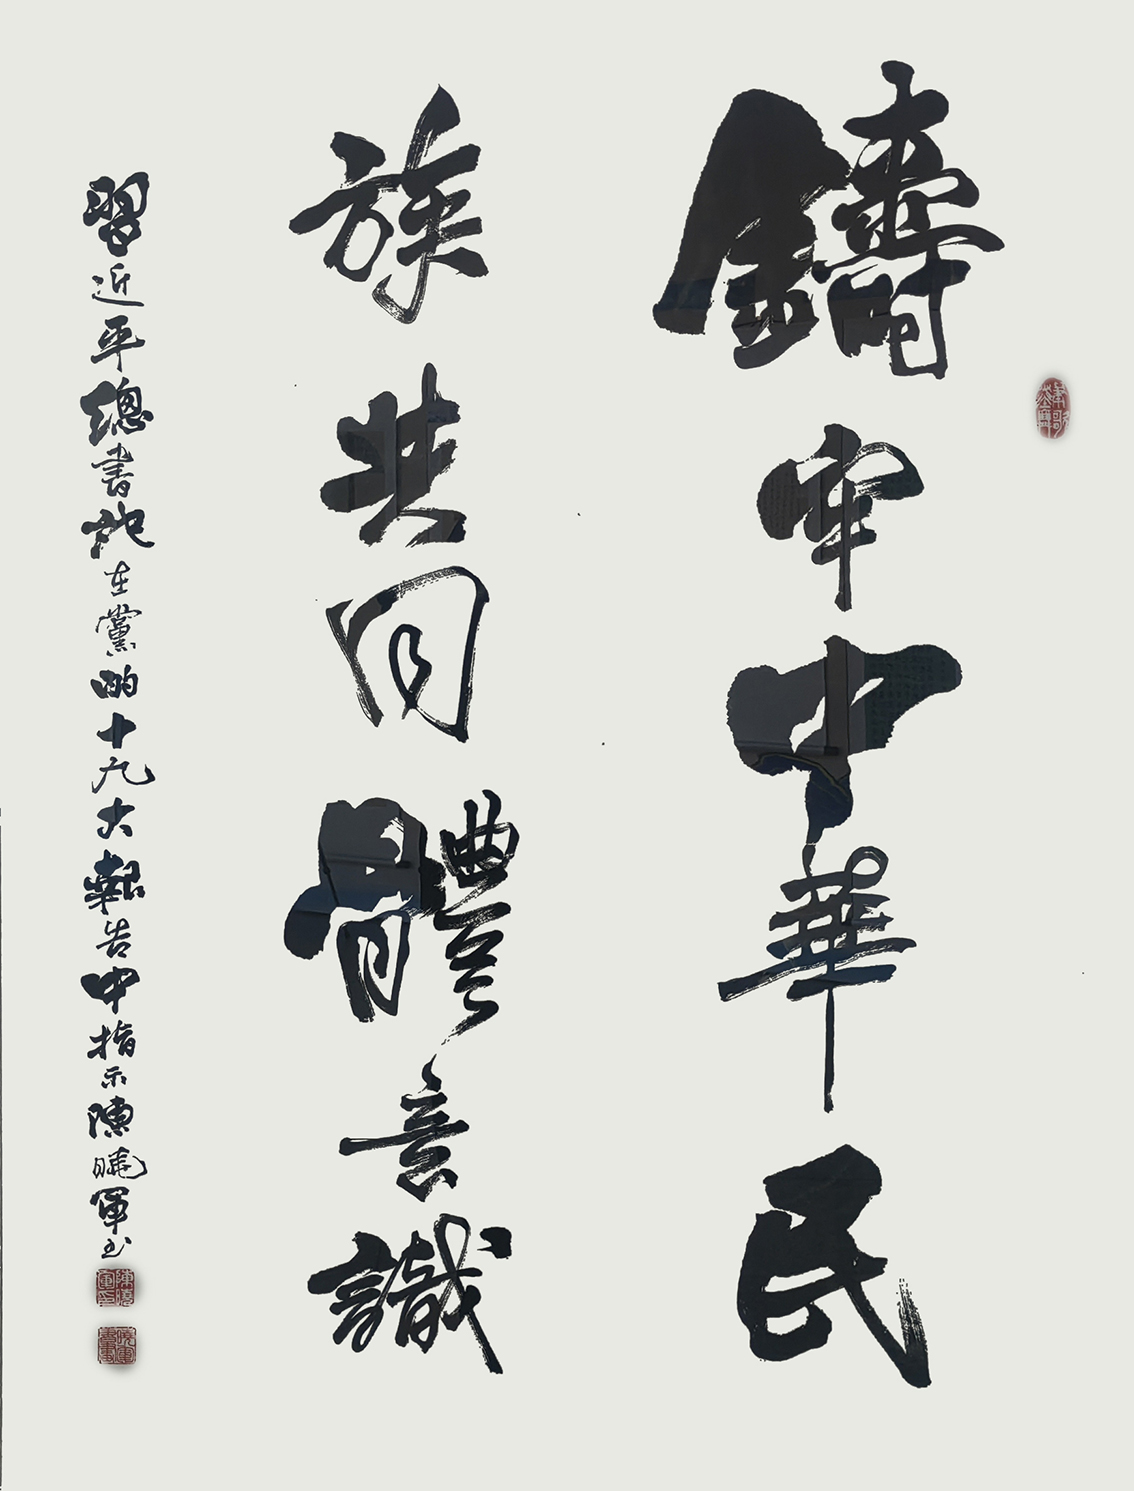 鑄牢中華民
族共同體意識
習近平總書記在黨的十九大報告中指示陳曉軍书